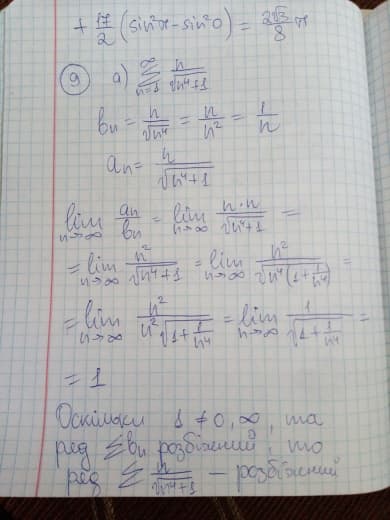 + 17/2 (sin²π - sin²0) = 23/8 π
9 а) ∑_{n=1}^{∞} n/√(n⁴+1)
bn = n/√n⁴ = n/n² = 1/n
an = n/√(n⁴+1)
lim_{n→∞} an/bn = lim_{n→∞} n·n/√(n⁴+1) =
= lim_{n→∞} n²/√(n⁴+1) = lim_{n→∞} n²/√(n⁴(1+1/n⁴)) =
= lim_{n→∞} n²/(n²√(1+1/n⁴)) = lim_{n→∞} 1/√(1+1/n⁴) =
= 1
Оскільки 1 ≠ 0, ∞, та
ряд ∑bn розбіжний, то
ряд ∑ n/√(n⁴+1) – розбіжний